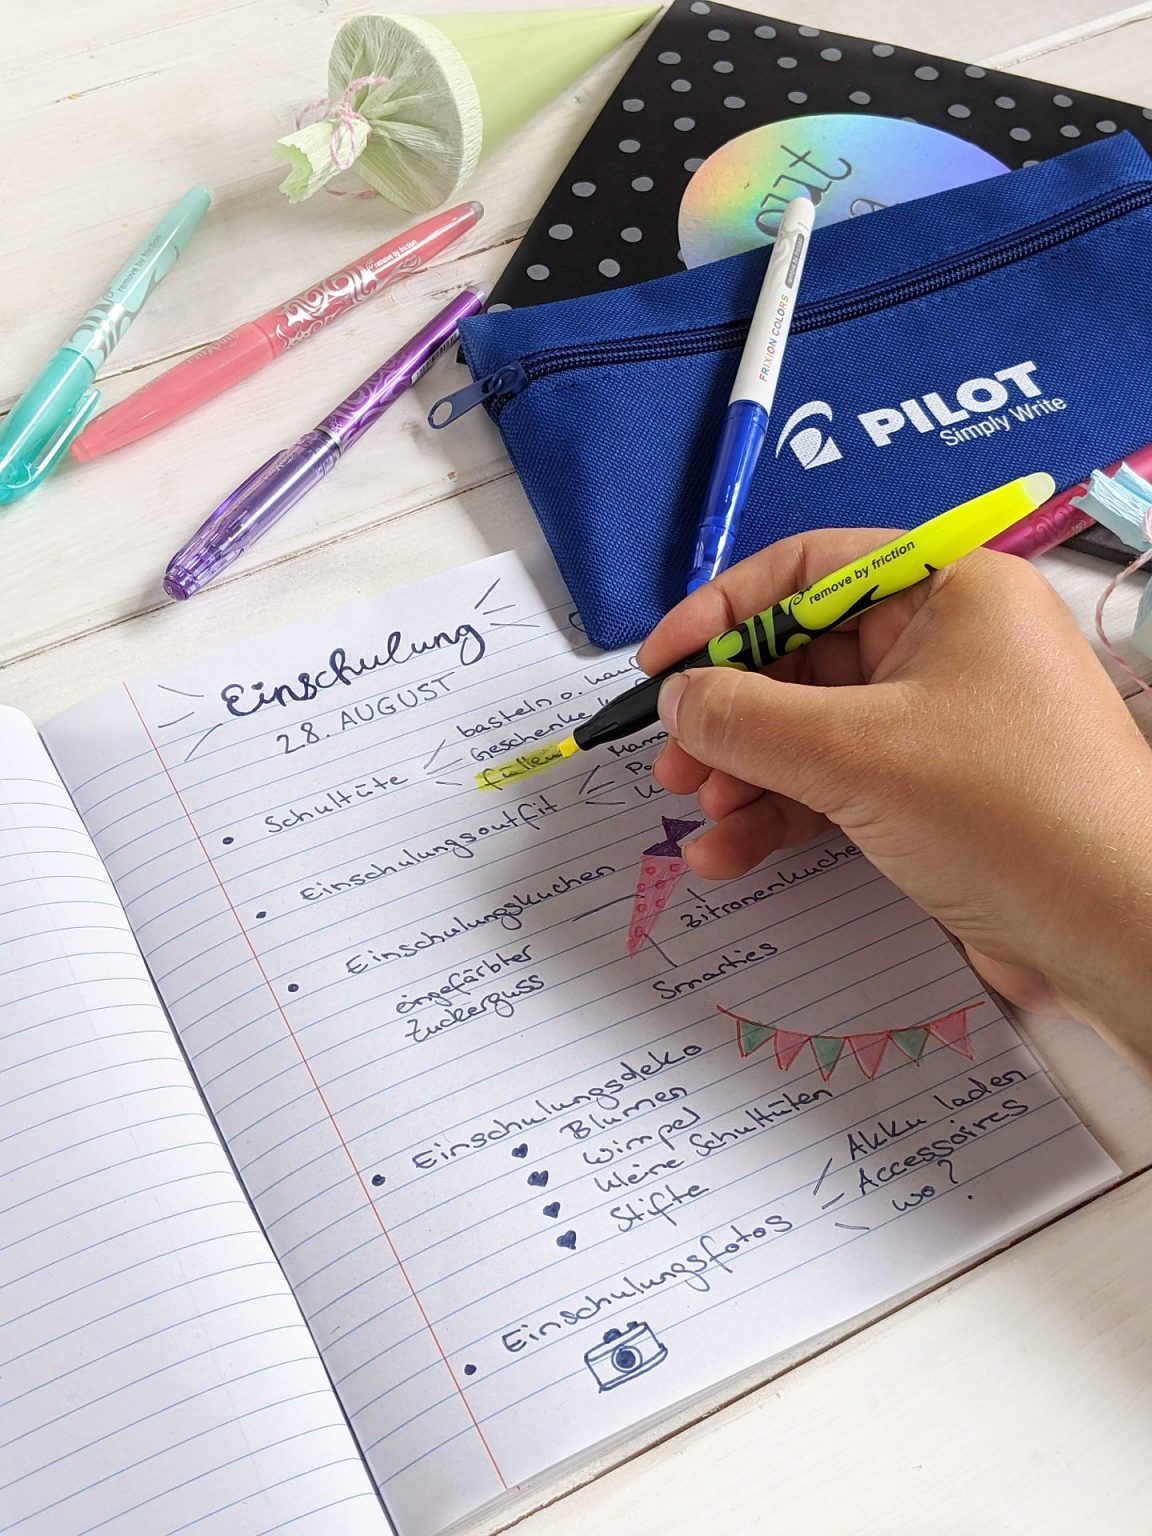 out
remove by friction
remove by friction
FRIXION COLORS
PILOT
Simply Write
remove by friction
Einschulung
28. AUGUST
• Schultüte
basteln o.
Geschenke
füllen
• Einschulungsoutfit
Mama
• Einschulungskuchen
Zitronenkuchen
Smarties
eingefärbter
Zuckerguss
• Einschulungsdeko
♥ Blumen
♥ Wimpel
♥ kleine Schultüten
♥ Stifte
• Einschulungsfotos
Akku laden
Accessoires
wo?